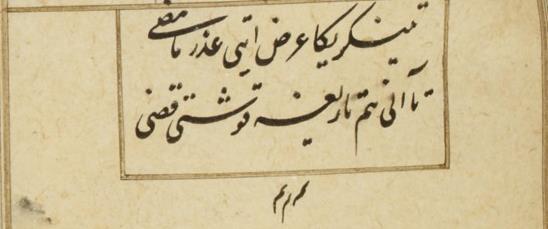 تینکریکا عرض ایتی عذر ما مضی
تا آنی هم یاریغه قوشتی قضی